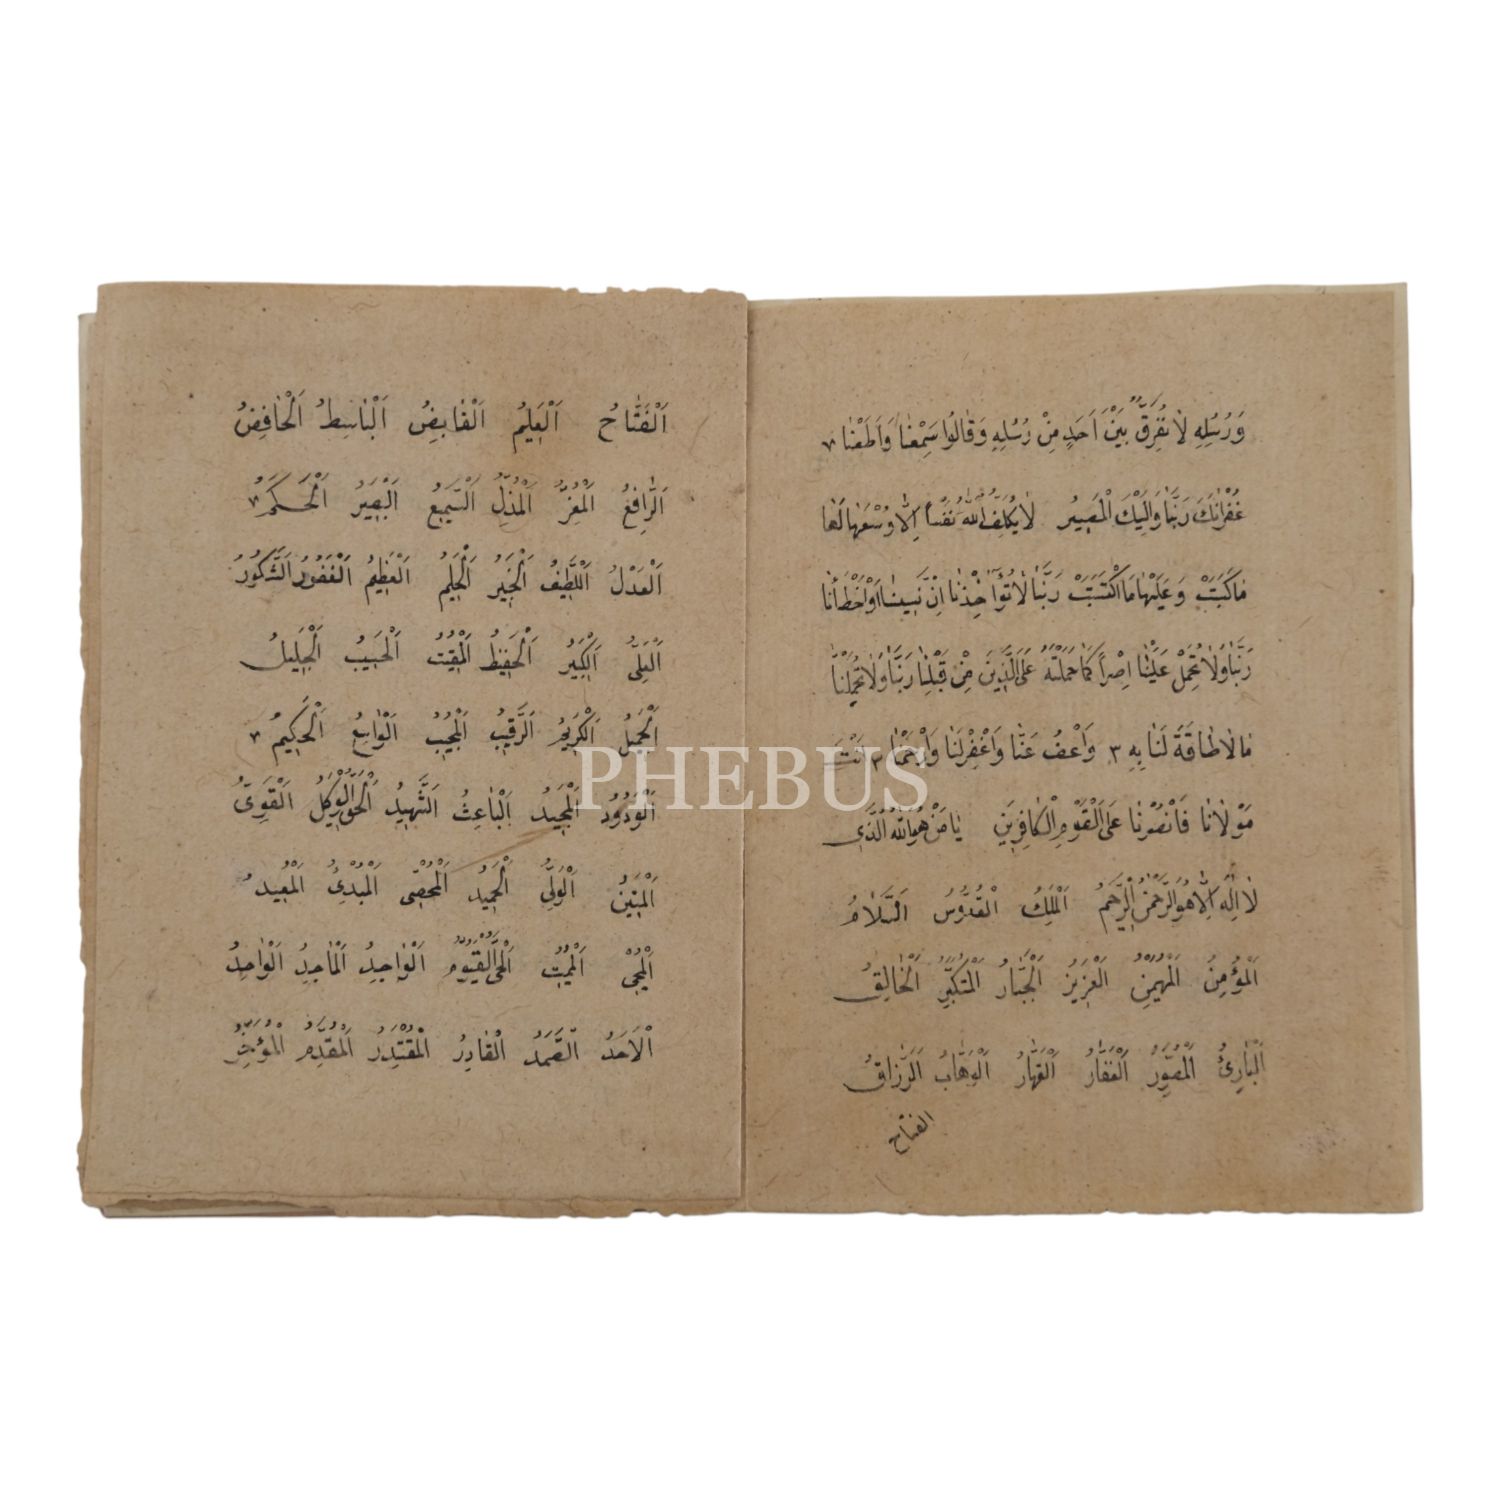 وَرُسُلِهِ لَا نُفَرِّقُ بَيْنَ اَحَدٍ مِنْ رُسُلِهِ وَقَالُوا سَمِعْنَا وَاَطَعْنَا
غُفْرَانَكَ رَبَّنَا وَاِلَيْكَ الْمَصِيرُ لَا يُكَلِّفُ اللّٰهُ نَفْسًا اِلَّا وُسْعَهَا لَهَا
مَا كَسَبَتْ وَعَلَيْهَا مَا اكْتَسَبَتْ رَبَّنَا لَا تُؤَاخِذْنَا اِنْ نَسِينَا اَوْ اَخْطَأْنَا
رَبَّنَا وَلَا تَحْمِلْ عَلَيْنَا اِصْرًا كَمَا حَمَلْتَهُ عَلَى الَّذِينَ مِنْ قَبْلِنَا رَبَّنَا وَلَا تُحَمِّلْنَا
مَا لَا طَاقَةَ لَنَا بِهِ ٣ وَاعْفُ عَنَّا وَاغْفِرْ لَنَا وَارْحَمْنَا ٣ اَنْتَ
مَوْلَانَا فَانْصُرْنَا عَلَى الْقَوْمِ الْكَافِرِينَ يَا مَنْ هُوَ اللّٰهُ الَّذِي
لَا اِلٰهَ اِلَّا هُوَ الرَّحْمٰنُ الرَّحِيمُ اَلْمَلِكُ الْقُدُّوسُ اَلسَّلَامُ
اَلْمُؤْمِنُ الْمُهَيْمِنُ الْعَزِيزُ الْجَبَّارُ الْمُتَكَبِّرُ اَلْخَالِقُ
اَلْبَارِئُ الْمُصَوِّرُ اَلْغَفَّارُ اَلْقَهَّارُ اَلْوَهَّابُ اَلرَّزَّاقُ
الفتاح
اَلْفَتَّاحُ اَلْعَلِيمُ اَلْقَابِضُ اَلْبَاسِطُ اَلْخَافِضُ
اَلرَّافِعُ اَلْمُعِزُّ اَلْمُذِلُّ اَلسَّمِيعُ اَلْبَصِيرُ اَلْحَكَمُ
اَلْعَدْلُ اَللَّطِيفُ اَلْخَبِيرُ اَلْحَلِيمُ اَلْعَظِيمُ اَلْغَفُورُ اَلشَّكُورُ
اَلْعَلِيُّ اَلْكَبِيرُ اَلْحَفِيظُ اَلْمُقِيتُ اَلْحَسِيبُ اَلْجَلِيلُ
اَلْجَمِيلُ اَلْكَرِيمُ اَلرَّقِيبُ اَلْمُجِيبُ اَلْوَاسِعُ اَلْحَكِيمُ ٣
اَلْوَدُودُ اَلْمَجِيدُ اَلْبَاعِثُ اَلشَّهِيدُ اَلْحَقُّ اَلْوَكِيلُ اَلْقَوِيُّ
اَلْمَتِينُ اَلْوَلِيُّ اَلْحَمِيدُ اَلْمُحْصِي اَلْمُبْدِئُ اَلْمُعِيدُ
اَلْمُحْيِي اَلْمُمِيتُ اَلْحَيُّ الْقَيُّومُ اَلْوَاجِدُ اَلْمَاجِدُ اَلْوَاحِدُ
اَلْاَحَدُ اَلصَّمَدُ اَلْقَادِرُ اَلْمُقْتَدِرُ اَلْمُقَدِّمُ اَلْمُؤَخِّرُ
PHEBUS